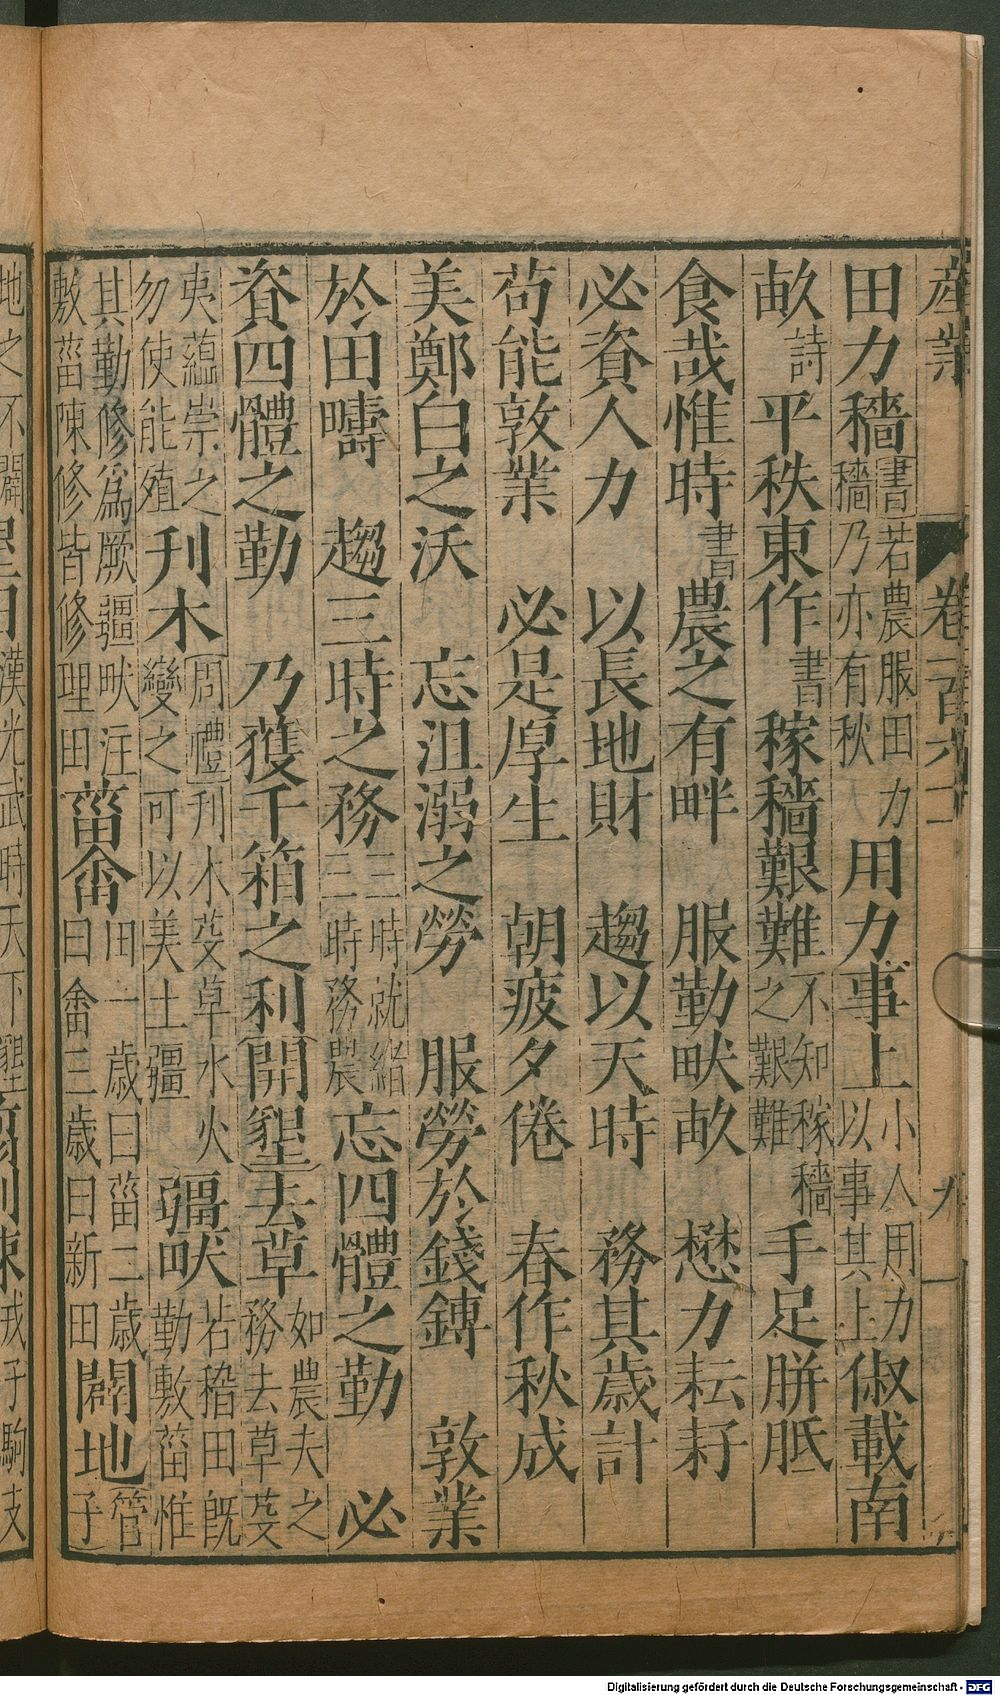 産業 卷二百六十一 九
田力穡書若農服田力穡乃亦有秋 用力事上小人用力以事其上俶載南
畝詩 平秩東作書 稼穡艱難不知稼穡之艱難 手足胼胝
食哉惟時書 農之有畔 服勤畎畝 懋力耘耔
必資人力 以長地財 趨以天時 務其歲計
苟能敦業 必足厚生 朝疲夕倦 春作秋成
美鄭白之沃 忘沮溺之勞 服勞於錢鎛 敦業
於田疇 趨三時之務三時就緒三時務農 忘四體之勤 必
資四體之勤 乃獲千箱之利 開墾 去草如農夫之務去草芟
夷蘊崇之勿使能殖刋木周禮刋木芟草水火變之可以美土疆 疆畎若稽田既勤敷菑惟
其勤修爲厥疆畎注敷菑陳修皆修理田菑畬田一歲曰菑二歲曰畬三歲曰新田闢地管子
地之不闢墾田漢光武時天下墾
Digitalisierung gefördert durch die Deutsche Forschungsgemeinschaft - DFG